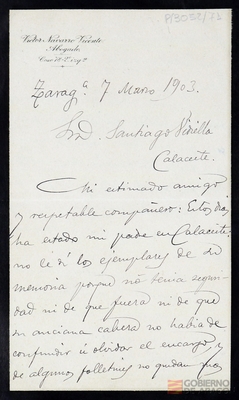 Victor Navarro Vicente
Abogado
Zarag.ª 7 Marzo 1903.
Srd. Santiago Vidiella
Calaceite.
Mi estimado amigo
y respetable compañero: Estos dias
ha estado mi padre en Calaceite,
no le dí los ejemplares de su
memoria porque no tenia seguri-
dad ni de que fuera ni de que
su anciana cabeza no habia de
confundir ú olvidar el encargo, y
de algunos folletines no quedan mas
GOBIERNO
DE ARAGON